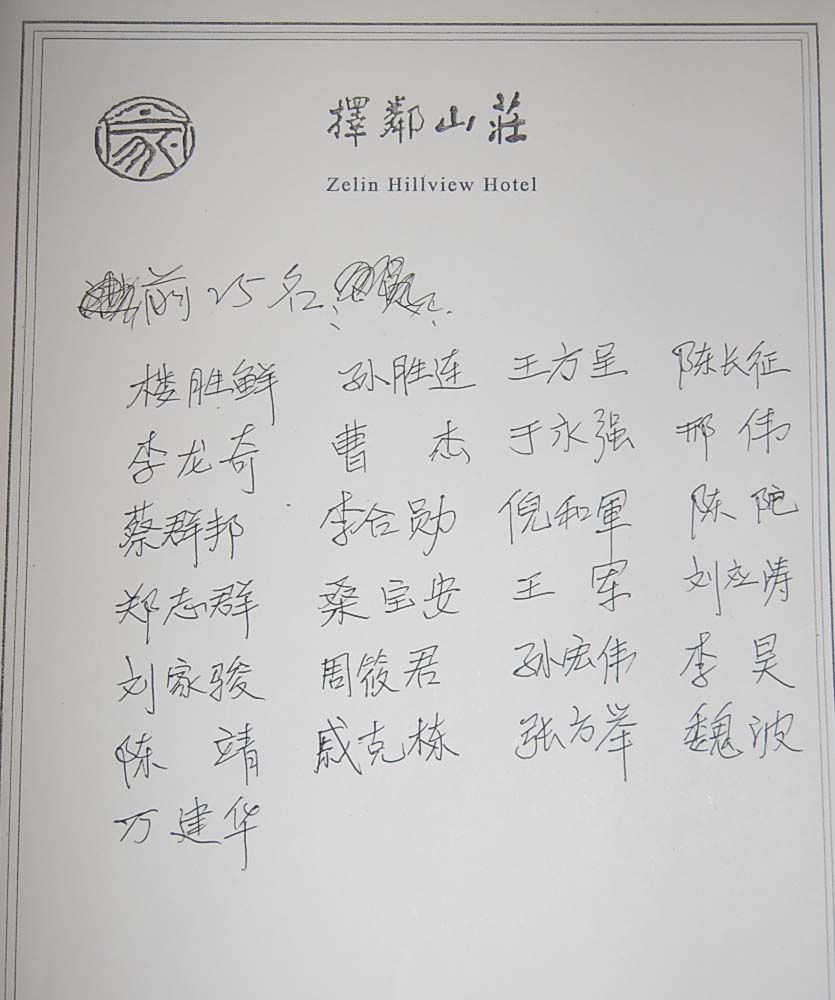 家
擇鄰山莊
Zelin Hillview Hotel
前25名
楼胜鲜 孙胜连 王方呈 陈长征
李龙奇 曹杰 于永强 邢伟
蔡群邦 李合勋 倪和軍 陈陀
郑志群 桑宝安 王军 刘立涛
刘家骏 周筱君 孙宏伟 李昊
陈靖 戚克栋 张方举 魏波
万建华